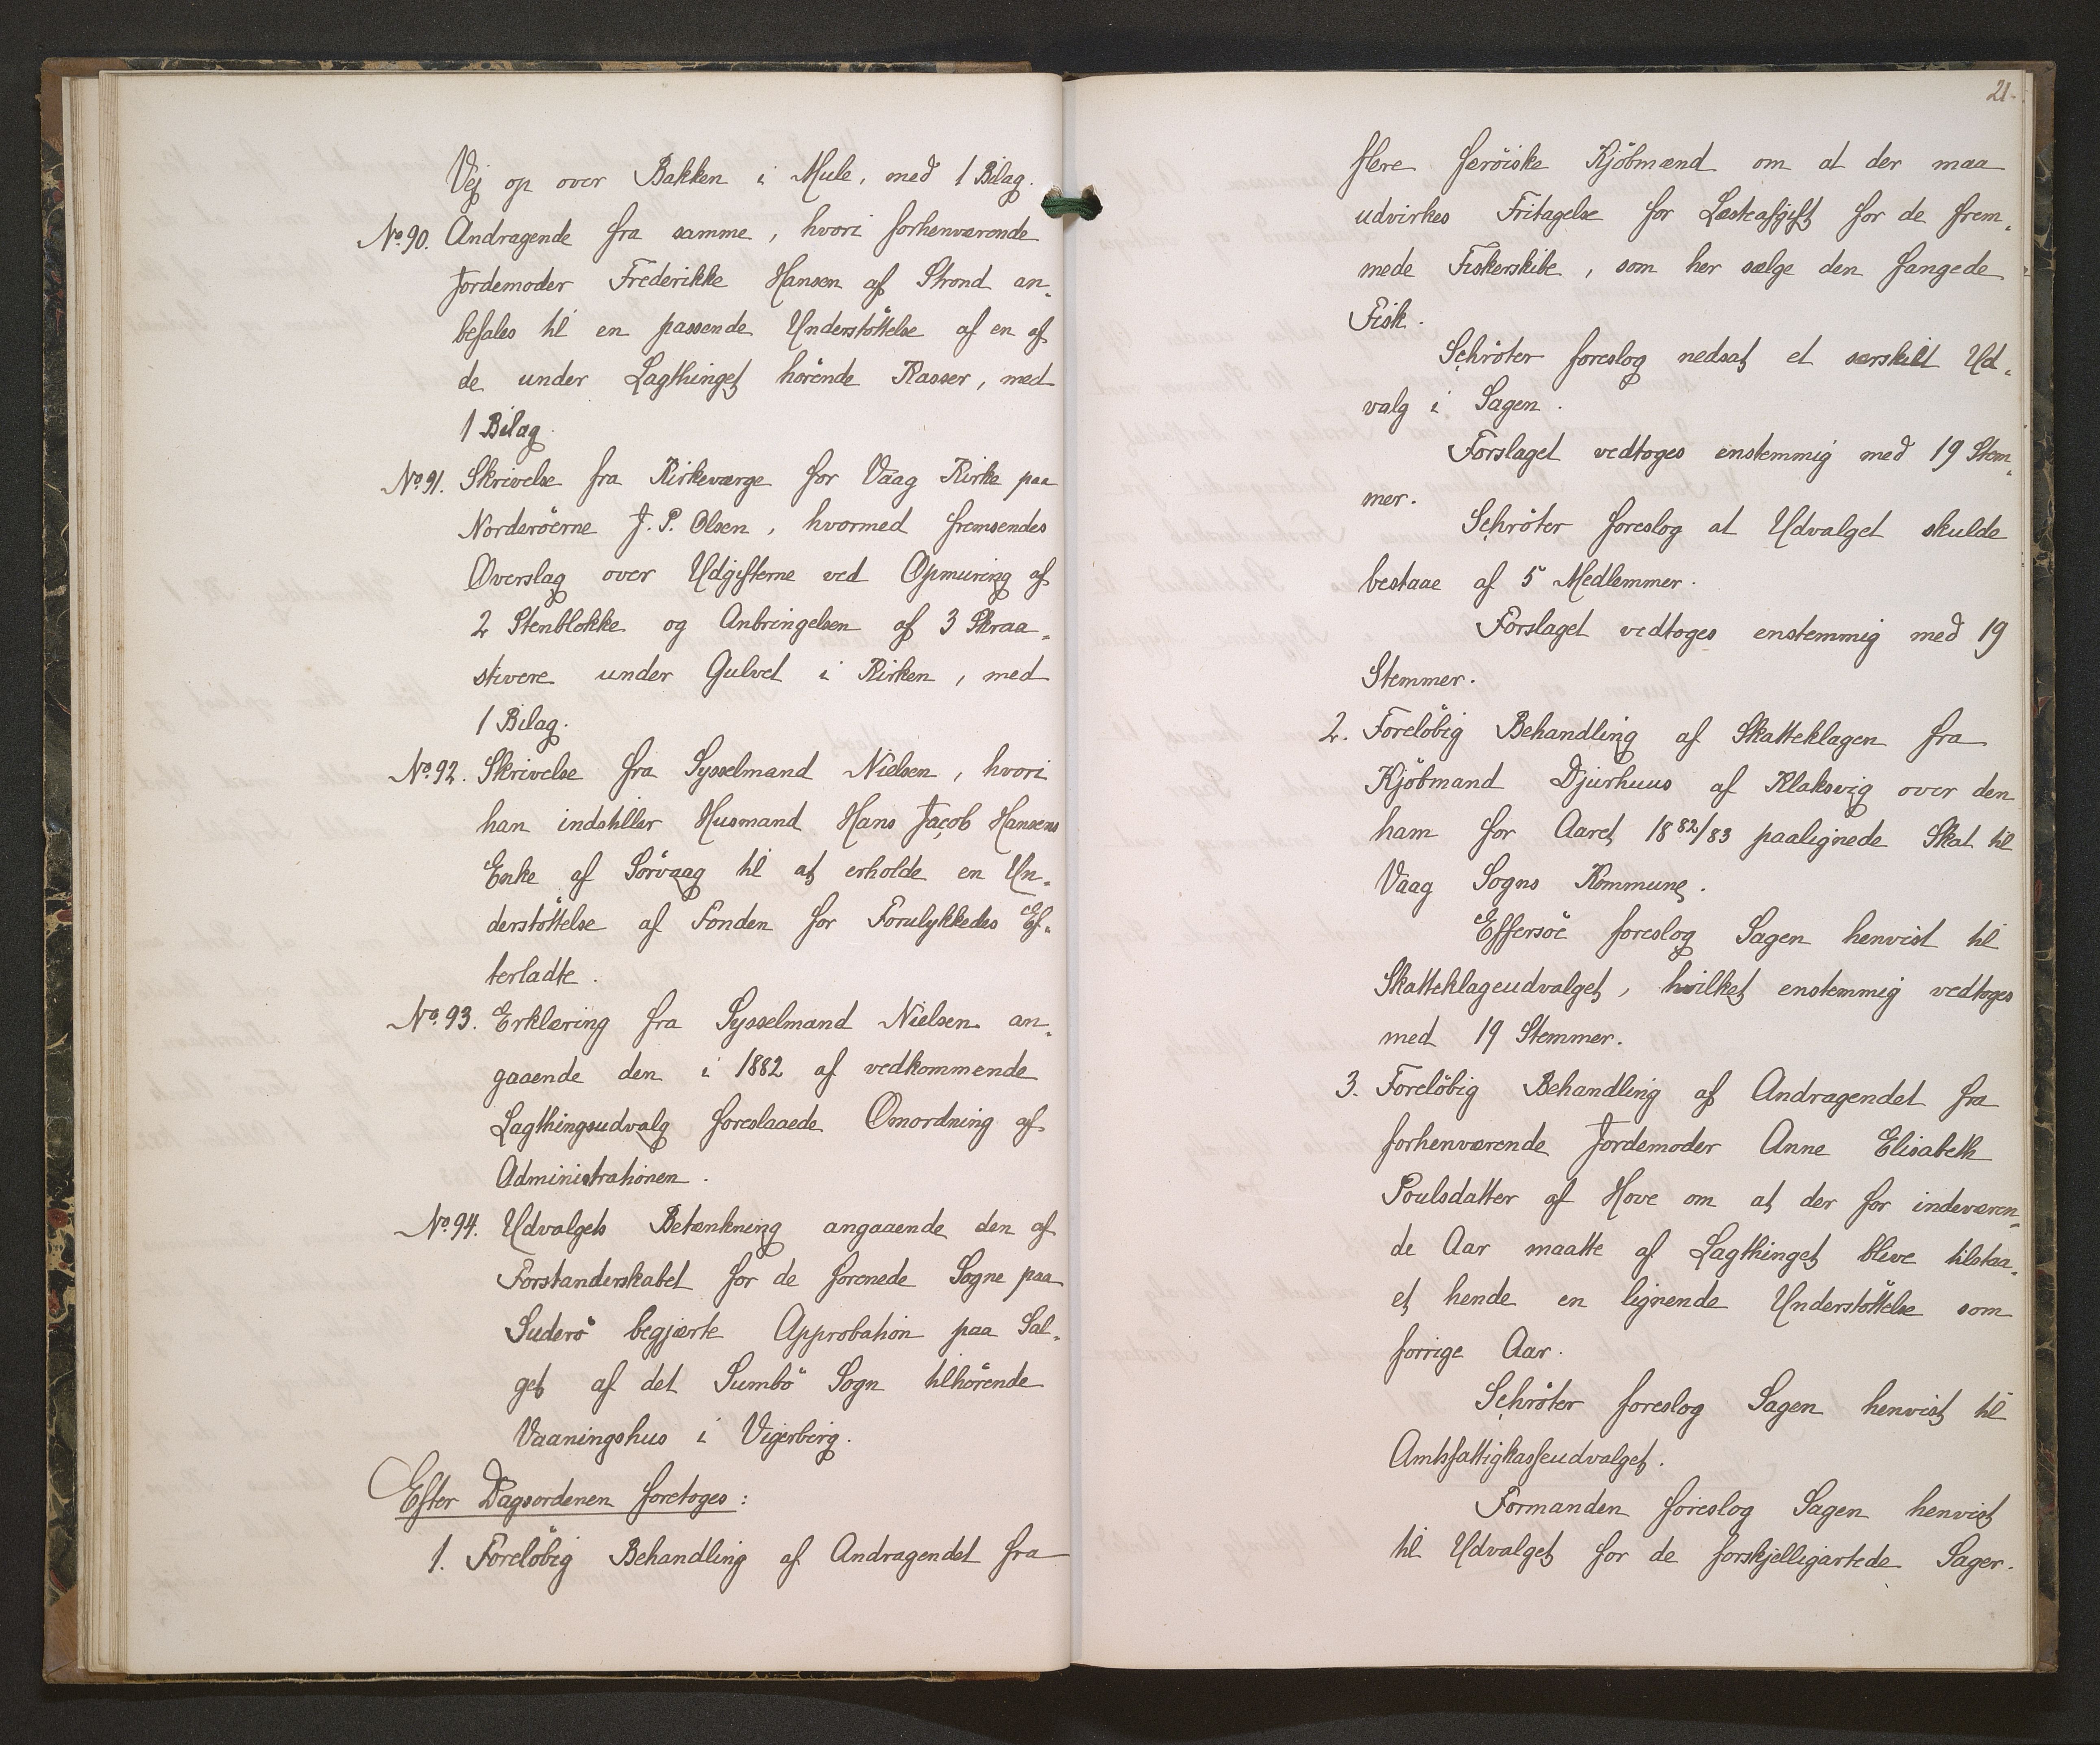 Vej op over Bakken i Mule, med 1 Bilag.
No. 90. Andragende fra samme, hvori forhenværende
Jordemoder Frederikke Hansen af Strond an-
befales til en passende Understöttelse af en af
de under Lagthinget hörende Kasser, med
1 Bilag.
No. 91. Skrivelse fra Kirkeværge for Vaag Kirke paa
Norderöerne J. P. Olsen, hvormed fremsendes
Overslag over Udgifterne ved Opmuring af
2 Stenblokke og Anbringelsen af 3 Skraa-
stivere under Gulvet i Kirken, med
1 Bilag.
No. 92. Skrivelse fra Sysselmand Nielsen, hvori
han indstiller Husmand Hans Jacob Hansens
Enke af Sörvaag til at erholde en Un-
derstöttelse af Fonden for Forulykkedes Ef-
terladte.
No. 93. Erklæring fra Sysselmand Nielsen an-
gaaende den i 1882 af vedkommende
Lagthingsudvalg foreslaaede Omordning af
Administrationen.
No. 94. Udvalgets Betænkning angaaende den af
Forstanderskabet for de forenede Sogne paa
Suderö begjærte Approbation paa Sal-
get af det Sumbö Sogn tilhörende
Vaaningshus i Vigerbirg.
Efter Dagsordenen foretoges:
1. Foreløbig Behandling af Andragendet fra
21.
flere færöiske Kjöbmænd om at der maa
udvirkes Fritagelse for Læsteafgift for de frem-
mede Fiskerskibe, som her sælge den fangede
Fisk.
Schröter foreslog nedsat et særskilt Ud-
valg i Sagen.
Forslaget vedtoges enstemmig med 19 Stem-
mer.
Schröter foreslog at Udvalget skulde
bestaae af 5 Medlemmer.
Forslaget vedtoges enstemmig med 19
Stemmer.
2. Forelöbig Behandling af Skatteklagen fra
Kjöbmand Djurhuus af Klaksvig over den
ham for Aaret 1882/83 paalignede Skat til
Vaag Sogns Kommune.
Effersöe foreslog Sagen henvist til
Skatteklageudvalget, hvilket enstemmig vedtoges
med 19 Stemmer.
3. Forelöbig Behandling af Andragendet fra
forhenværende Jordemoder Anne Elisabeth
Poulsdatter af Hove om at der for indeværen-
de Aar maatte af Lagthinget blive tilstaa-
et hende en lignende Understöttelse som
forrige Aar.
Schröter foreslog Sagen henvist til
Amtsfattigkasseudvalget.
Formanden foreslog Sagen henvist
til Udvalget for de forskjelligartede Sager.